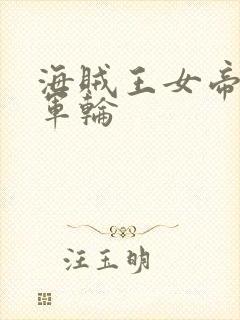 海贼王女帝
军輪
汪玉明